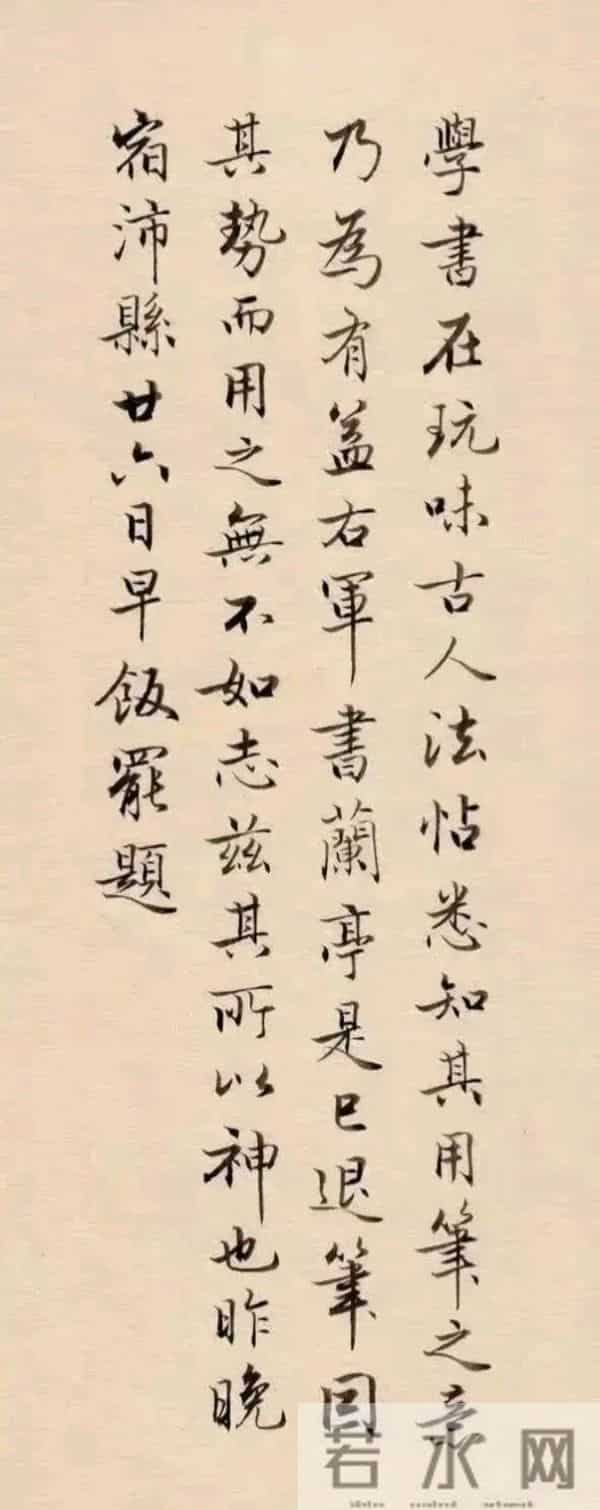 學書在玩味古人法帖悉知其用筆之意
乃為有益右軍書蘭亭是已退筆因
其勢而用之無不如志茲其所以神也昨晚
宿沛縣廿六日早飯罷題
若水网